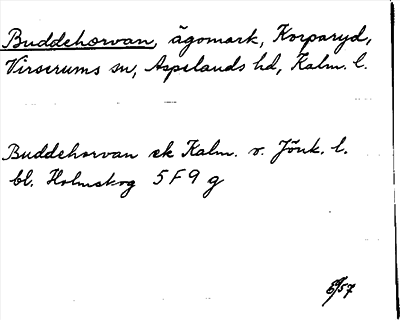 Buddehorvan, ägomark, Korparyd,
Virserums sn, Aspelands hd, Kalm. l.
Buddehorvan ek Kalm. o. Jönk. l.
bl. Holmskog 5 F 9 g